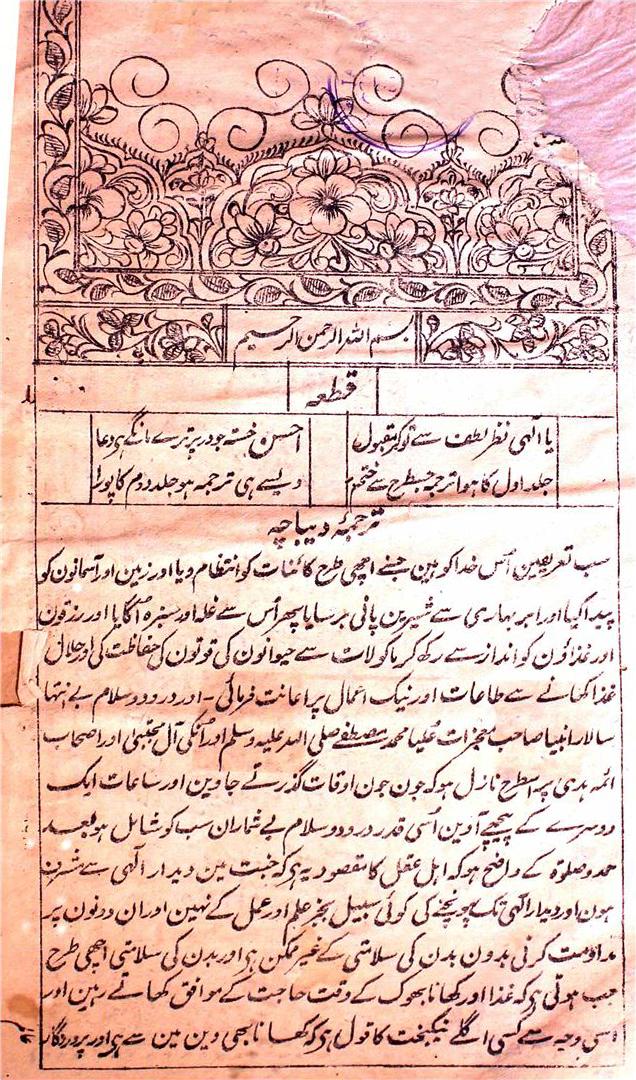 بسم اللہ الرحمن الرحیم
قطعہ
یا الٰہی نظر لطف سے تو کر مقبول
احسن خستہ جو در پر ترے مانگے ہی دعا
جلد اول کا ہوا ترجمہ جسطرح سے ختم
ویسے ہی ترجمہ ہو جلد دوم کا پورا
ترجمۂ دیباچہ
سب تعریفین اُس خدا کو ہین جسنے اچھی طرح کائنات کو انتظام دیا اور زمین اور آسمانون کو
پیدا کیا اور ابر بہاری سے شیرین پانی برسایا پھر اُس سے غلہ اور سبزہ اُگایا اور رزقون
اور غذاؤن کو انداز سے رکھ کر ماکولات سے حیوانون کی قوتون کی حفاظت کی اور حلال
غذا کھانے سے طاعات اور نیک اعمال پر اعانت فرمائی - اور درود و سلام بے انتہا
سالار انبیا صاحب معجزات علیا محمد مصطفےٰ صلی اللہ علیہ وسلم اور اُنکی آل مجتبیٰ اور اصحاب
ائمہ ہدیٰ پر اسطرح نازل ہو کہ جون جون اوقات گذرتے جاوین اور ساعات ایک
دوسرے کے پیچھے آوین اُسی قدر درود و سلام بے شمار ان سب کو شامل ہو بعد
حمد و صلوٰۃ کے واضح ہو کہ اہل عقل کا مقصود یہ ہی کہ جنت مین دیدار الٰہی سے مشرف
ہون اور دیدار الٰہی تک پہونچنے کی کوئی سبیل بجز علم اور عمل کے نہین اور ان دونون پر
مداومت کرنی بدون بدن کی سلامتی کے غیر ممکن ہی اور بدن کی سلامتی اچھی طرح
جب ہوتی ہی کہ غذا اور کھانا بھوک کے وقت حاجت کے موافق کھاتے رہین اور
اسی وجہ سے کسی اگلے نیکبخت کا قول ہی کہ کھانا بھی دین مین سے ہی اور پروردگار